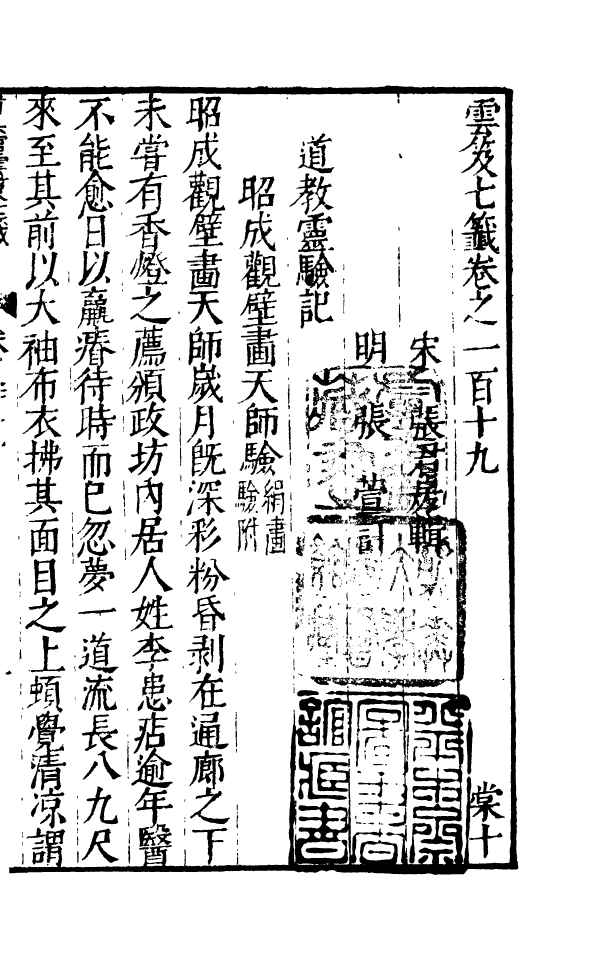 雲笈七籤卷之一百十九
棠十
宋 張君房輯
明 張萱訂
道教靈驗記
昭成觀壁畫天師驗絹畫驗附
昭成觀壁畫天師歲月旣深彩粉昏剥在通廊之下
未嘗有香燈之薦頒政坊內居人姓李患痁逾年醫
不能愈日以羸瘠待時而已忽夢一道流長八九尺
來至其前以大袖布衣拂其面目之上頓覺清凉謂